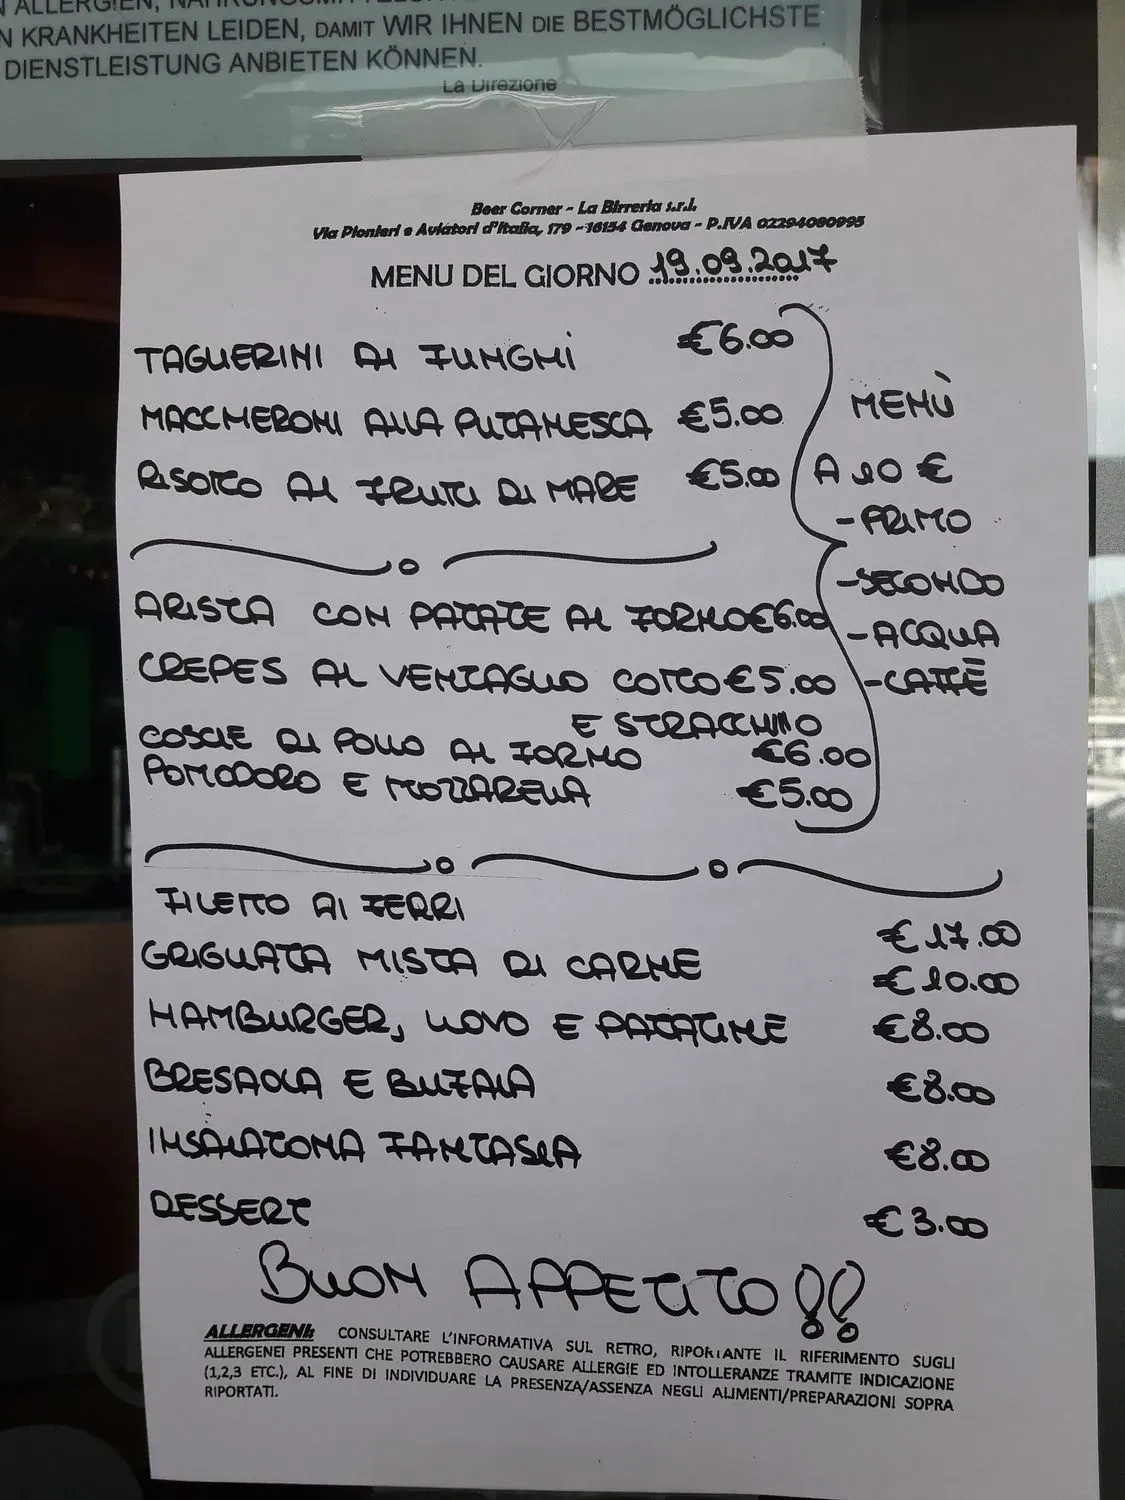 ALLERGIEN,
N KRANKHEITEN LEIDEN, DAMIT WIR IHNEN DIE BESTMÖGLICHSTE
DIENSTLEISTUNG ANBIETEN KÖNNEN.
La Direzione
Beer Corner - La Birreria s.r.l.
Via Pionieri e Aviatori d'Italia, 179 - 16154 Genova - P.IVA 02294080995
MENU DEL GIORNO 19.09.2017
TAGLIERINI AI FUNGHI €6.00
MACCHERONI ALLA PUTANESCA €5.00
RISOTTO AI FRUTTI DI MARE €5.00
MENÙ
A 10 €
- PRIMO
- SECONDO
- ACQUA
- CAFFÈ
ARISTA CON PATATE AL FORNO €6.00
CREPES AL VENTAGLIO COTTO €5.00
E STRACCHINO
COSCIE DI POLLO AL FORNO €6.00
POMODORO E MOZZARELLA €5.00
FILETTO AI FERRI €17.00
GRIGLIATA MISTA DI CARNE €10.00
HAMBURGER, UOVO E PATATINE €8.00
BRESAOLA E BUFALA €8.00
INSALATONA FANTASIA €8.00
DESSERT €3.00
BUON APPETITO!!
ALLERGENI: CONSULTARE L'INFORMATIVA SUL RETRO, RIPORTANTE IL RIFERIMENTO SUGLI
ALLERGENEI PRESENTI CHE POTREBBERO CAUSARE ALLERGIE ED INTOLLERANZE TRAMITE INDICAZIONE
(1,2,3 ETC.), AL FINE DI INDIVIDUARE LA PRESENZA/ASSENZA NEGLI ALIMENTI/PREPARAZIONI SOPRA
RIPORTATI.